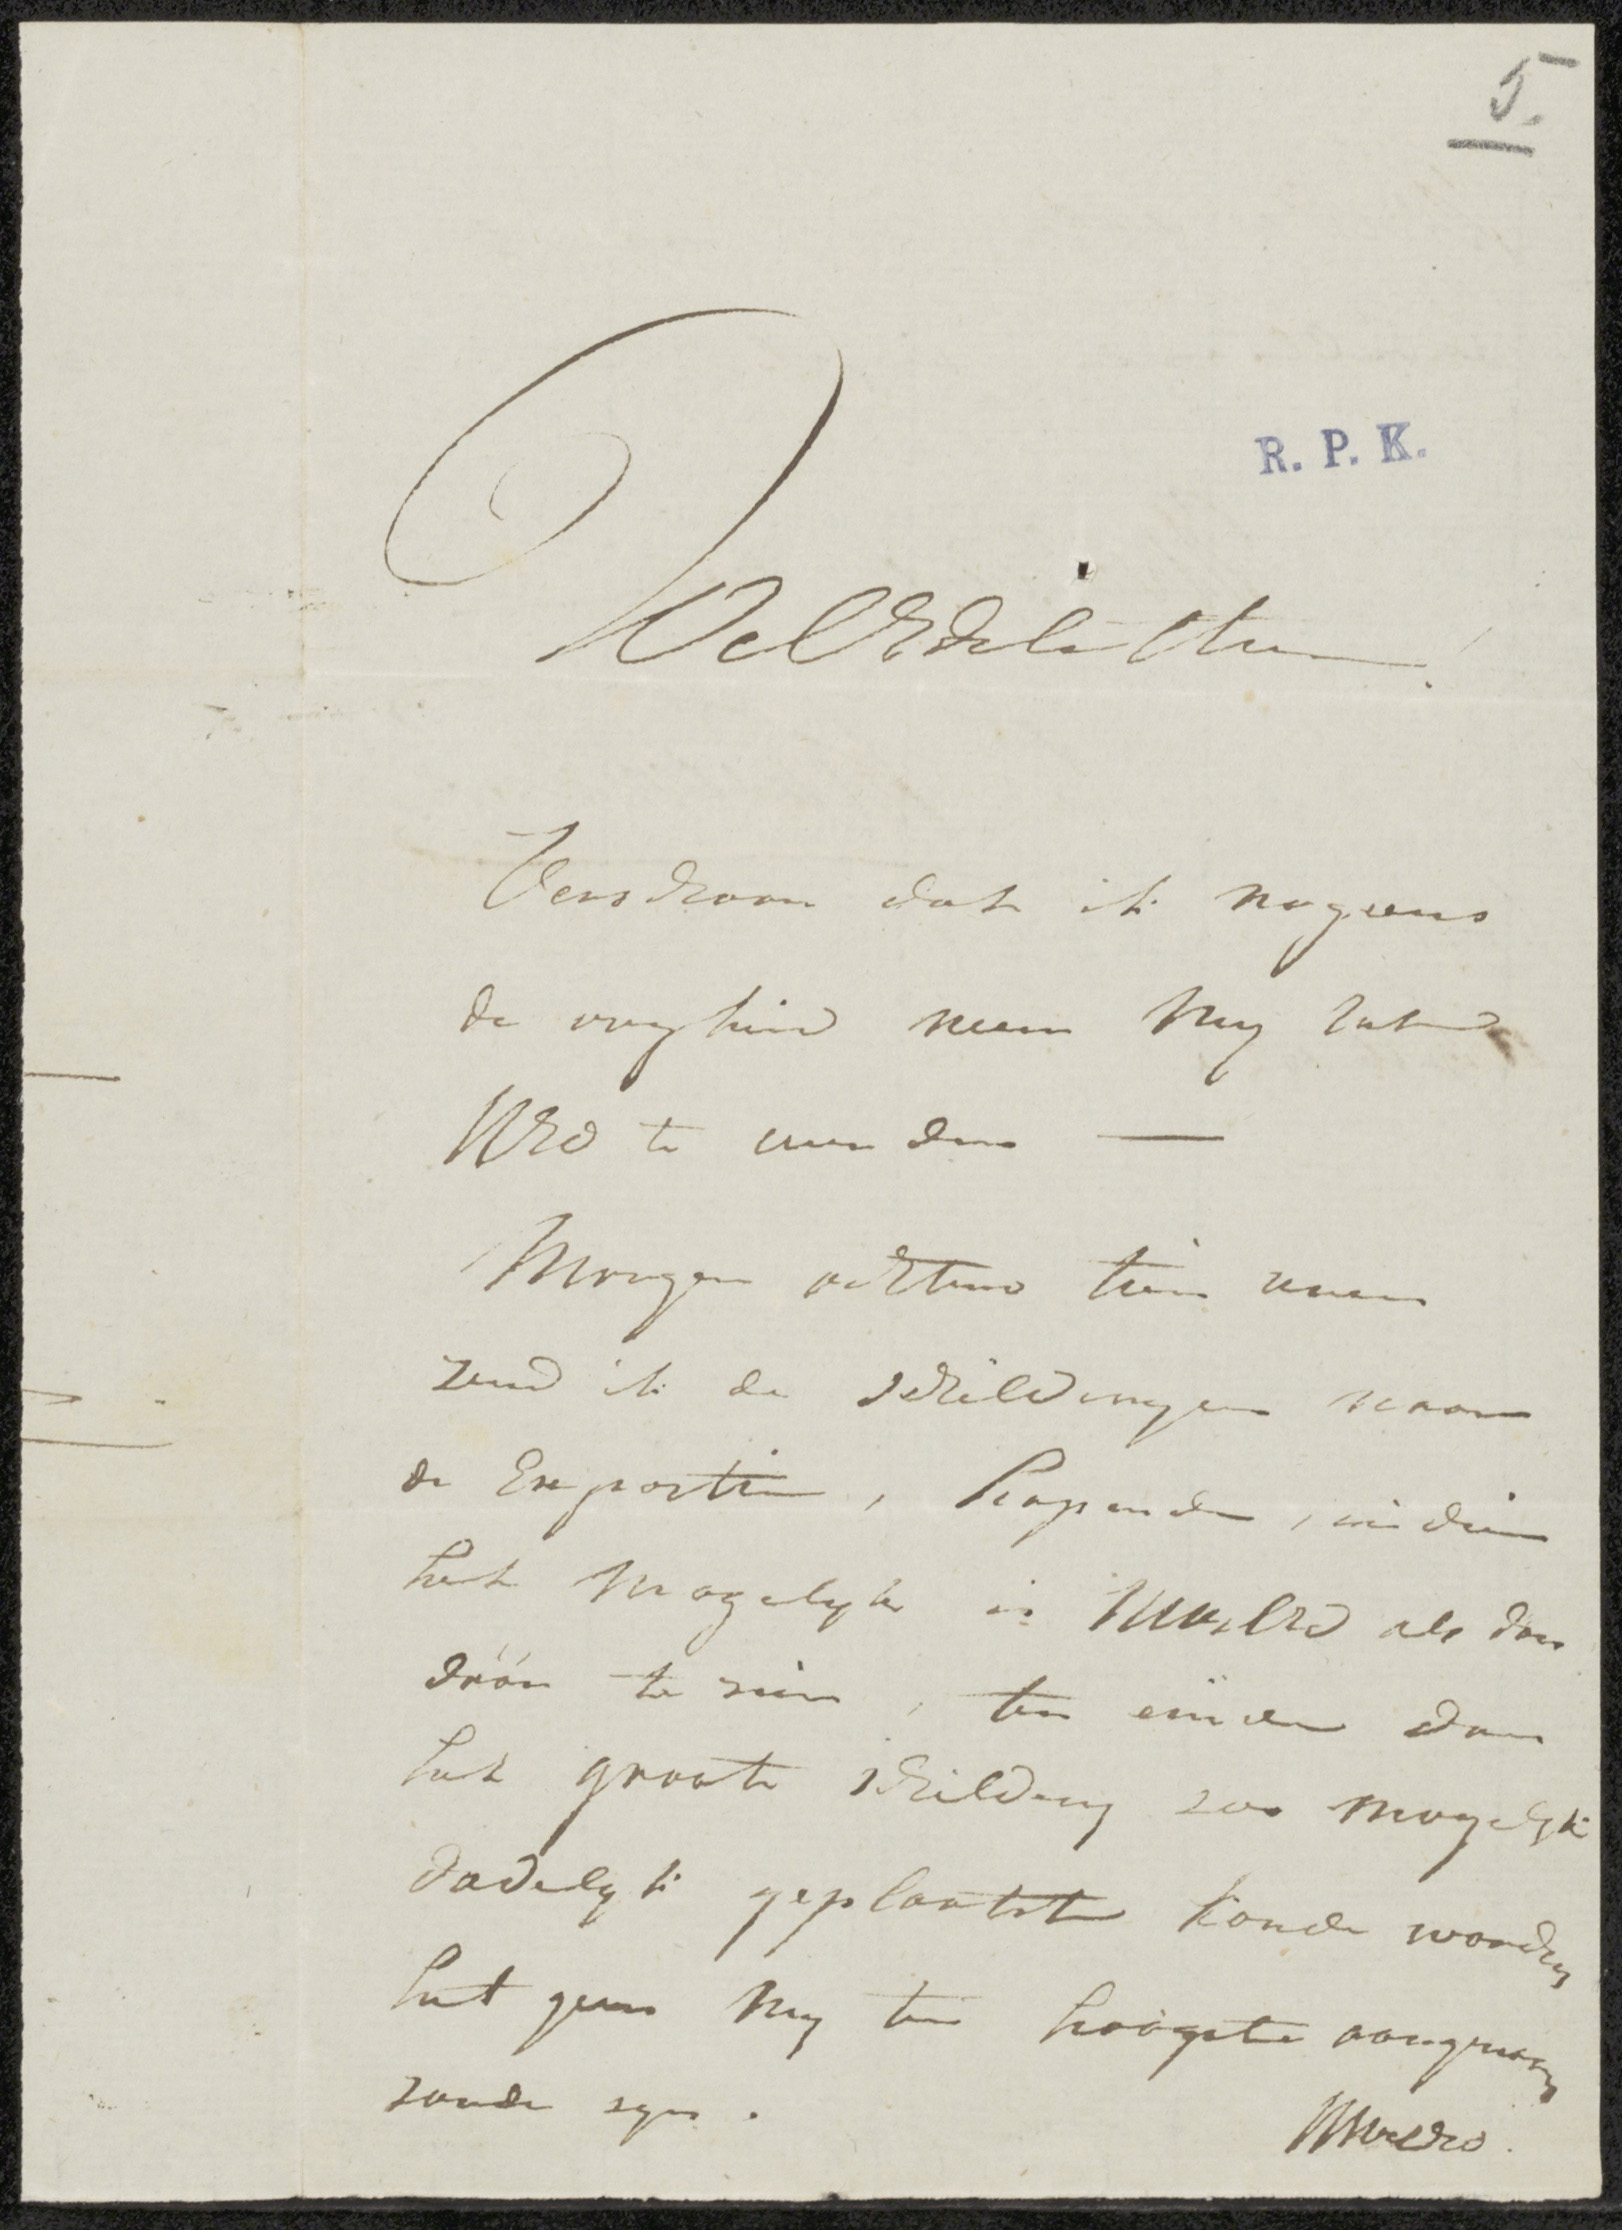 5.
R. P. K.
WelEdele Heer!
Verschoon dat ik nogeens
de vryheid neem My tot
UEd te wenden —
Morgen ochtend tien uuren
zend ik de schilderyen naar
de Expositie, hopende, indien
het Mogelyk is UwelEd als dan
dáár te zien, ten einde dan
het groote schildery zoo mogelyk
dadelyk geplaatst konde worden
het geen My ten hoogste aangenaam
zoude zyn.
UwelEd.